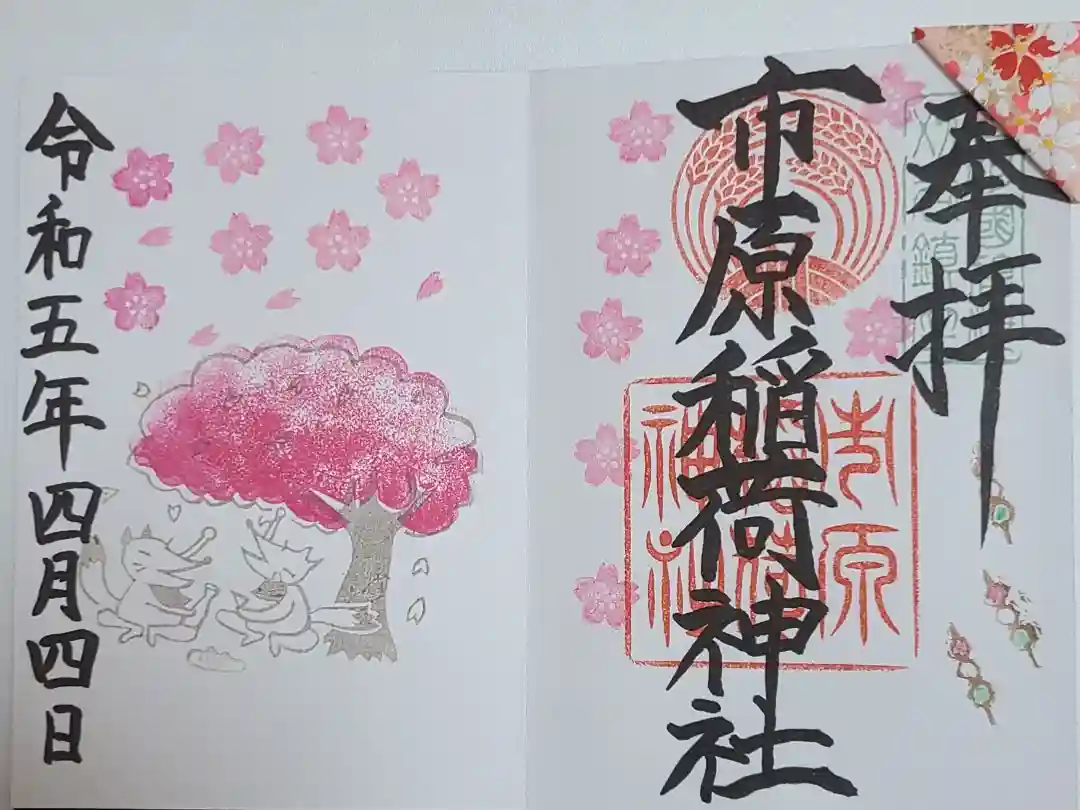 奉拝
市原稲荷神社
市原
稲荷
神社
令和五年四月四日